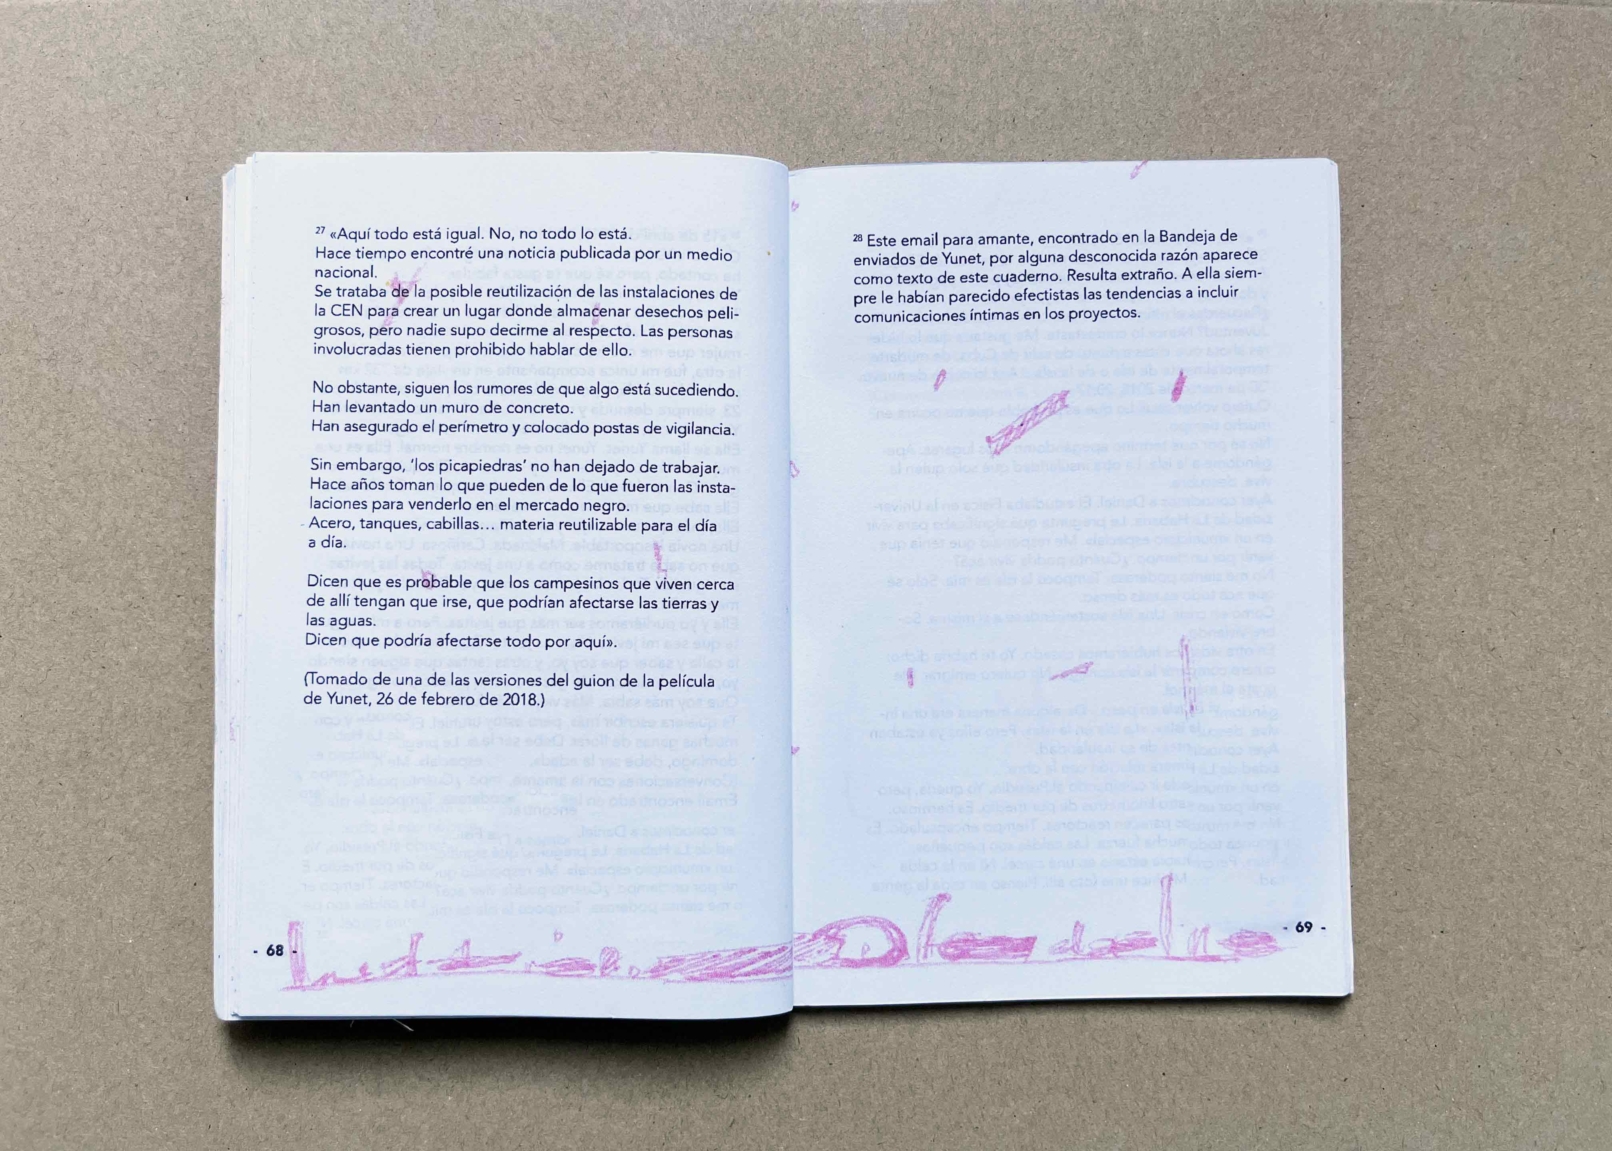 27 «Aquí todo está igual. No, no todo lo está.
Hace tiempo encontré una noticia publicada por un medio
nacional.
Se trataba de la posible reutilización de las instalaciones de
la CEN para crear un lugar donde almacenar desechos peli-
grosos, pero nadie supo decirme al respecto. Las personas
involucradas tienen prohibido hablar de ello.
No obstante, siguen los rumores de que algo está sucediendo.
Han levantado un muro de concreto.
Han asegurado el perímetro y colocado postas de vigilancia.
Sin embargo, ‘los picapiedras’ no han dejado de trabajar.
Hace años toman lo que pueden de lo que fueron las insta-
laciones para venderlo en el mercado negro.
Acero, tanques, cabillas... materia reutilizable para el día
a día.
Dicen que es probable que los campesinos que viven cerca
de allí tengan que irse, que podrían afectarse las tierras y
las aguas.
Dicen que podría afectarse todo por aquí».
(Tomado de una de las versiones del guion de la película
de Yunet, 26 de febrero de 2018.)
- 68 -
28 Este email para amante, encontrado en la Bandeja de
enviados de Yunet, por alguna desconocida razón aparece
como texto de este cuaderno. Resulta extraño. A ella siem-
pre le habían parecido efectistas las tendencias a incluir
comunicaciones íntimas en los proyectos.
- 69 -